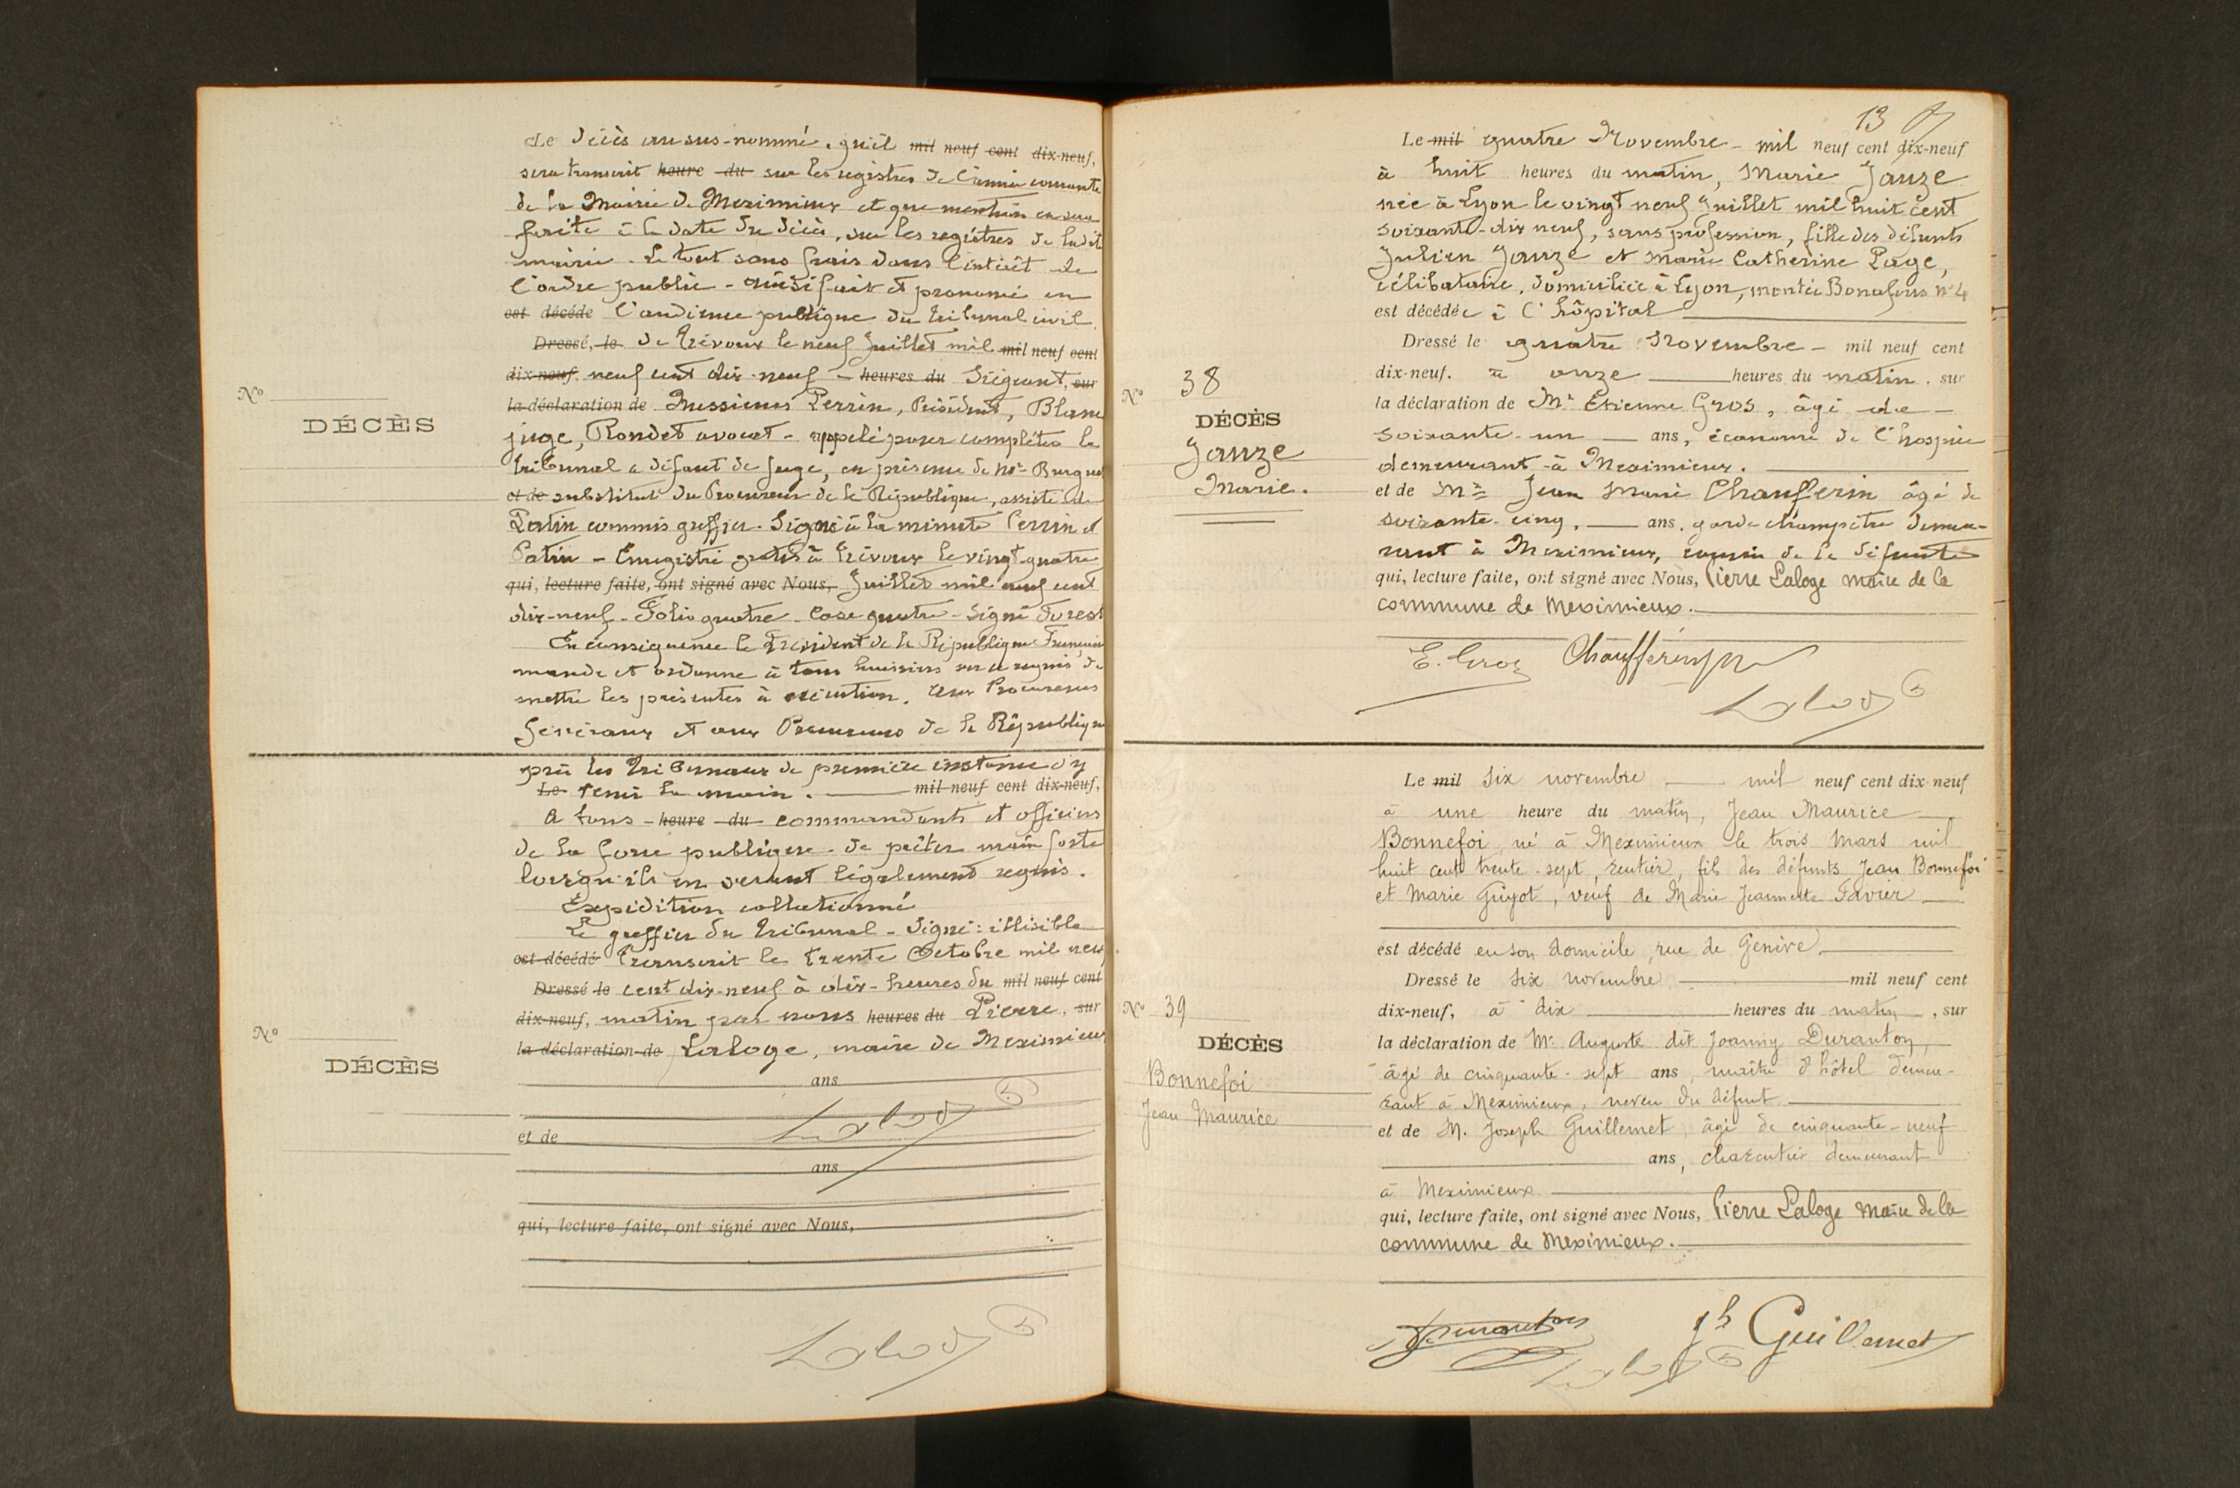 Le décès au sus-nommé, qu'il mil neuf cent dix-neuf,
sera transcrit heure du sur les registres de l'année courante
de la Mairie de Meximieux et que mention en sera
faite à la date du décès, sur les registres de ladite
mairie. Le tout sans frais dans l'intérêt de
l'ordre public - Ainsi fait et prononcé en
est décédé l'audience publique du tribunal civil
Dressé, le de Trévoux le neuf Juillet mil mil neuf cent
dix-neuf. neuf cent dix-neuf - heures du Siégeant, sur
la déclaration de Messieurs Perrin, Président, Blanc
No
DÉCÈS
juge, Rondet avocat - appelé pour compléter le
tribunal à défaut de juge, en présence de Mr
et de substitut du Procureur de la République, assisté de
Patin commis greffier. Signé à la minute Perrin et
Patin - Enregistré gratis à Trévoux le vingt-quatre
qui, lecture faite, ont signé avec Nous, Juillet mil neuf cent
dix-neuf - Folio quatre - Case quatre - Signé
En conséquence le Président de la République Française
mande et ordonne à tous huissiers sur ce requis de
mettre les présentes à exécution. Aux Procureurs
Généraux et aux Procureurs de la République
près les Tribunaux de première instance d'y
Le tenir la main. mil neuf cent dix-neuf,
A tous - heure du commandants et officiers
de la force publique - de prêter main forte
lorsqu'ils en seront légalement requis.
Expédition collationnée
Le greffier du Tribunal - Signé : illisible
est décédé Transcrit le trente Octobre mil neuf
Dressé le cent dix-neuf à dix-heures du mil neuf cent
dix-neuf, matin par nous heures du Pierre, sur
la déclaration de Laloge, maire de Meximieux
No
DÉCÈS
ans
et de
ans
qui, lecture faite, ont signé avec Nous,
13
Le mil quatre Novembre - mil neuf cent dix-neuf
à huit heures du matin, Marie Janze
née à Lyon le vingt neuf Juillet mil huit cent
soixante-dix neuf, sans profession, fille des défunts
Julien Janze et Marie Catherine Page,
célibataire, domiciliée à Lyon, montée Bonafous n° 4
est décédée à l'hôpital
Dressé le quatre Novembre - mil neuf cent
dix-neuf. à onze heures du matin, sur
No 38
DÉCÈS
Janze
Marie.
la déclaration de Mr Etienne Gros, âgé de -
soixante-un ans, économe de l'hospice
demeurant à Meximieux.
et de Mr Jean Marie Chaufferin âgé de
soixante-cinq, ans, garde champêtre demeu-
rant à Meximieux, cousin de la défunte
qui, lecture faite, ont signé avec Nous, Pierre Laloge Maire de la
commune de Meximieux.
E. Gros Chaufferin
Le mil six novembre mil neuf cent dix-neuf
à une heure du matin, Jean Maurice
Bonnefoi, né à Meximieux le trois Mars mil
huit cent trente-sept, rentier, fils des défunts Jean Bonnefoi
et Marie Guyot, veuf de Marie Jeannette Favier
est décédé en son domicile, rue de Genève
Dressé le six novembre mil neuf cent
dix-neuf, à dix heures du matin, sur
No 39
DÉCÈS
Bonnefoi
Jean Maurice
la déclaration de Mr Auguste dit Joanny Duranton,
âgé de cinquante-sept ans, maître d'hôtel demeu-
rant à Meximieux, neveu du défunt
et de M. Joseph Guillemet, âgé de cinquante-neuf
ans, charcutier demeurant
à Meximieux
qui, lecture faite, ont signé avec Nous, Pierre Laloge Maire de la
commune de Meximieux.
Duranton Jh Guillemet